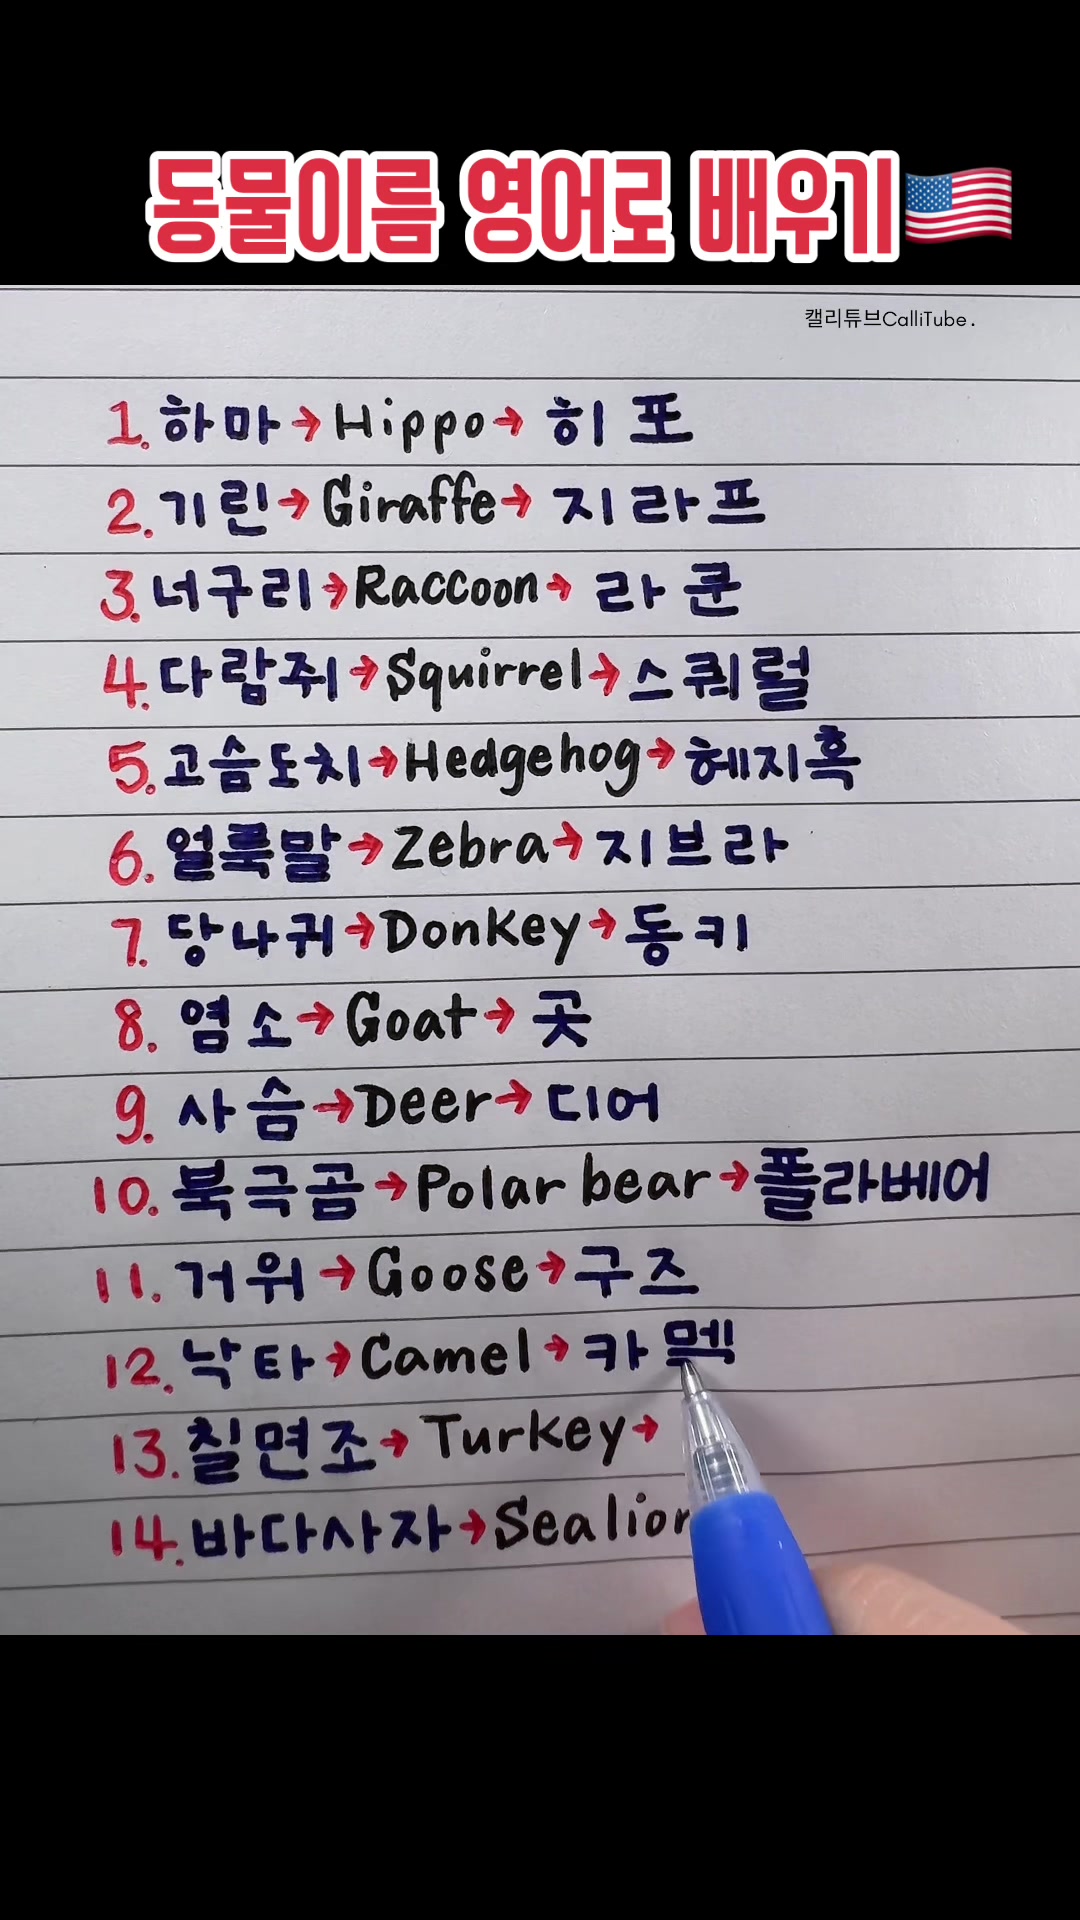 동물이름 영어로 배우기
캘리튜브CalliTube.
1. 하마→Hippo→ 히포
2. 기린→Giraffe→ 지라프
3. 너구리→Raccoon→ 라쿤
4. 다람쥐→Squirrel→스쿼럴
5. 고슴도치→Hedgehog→헤지혹
6. 얼룩말→Zebra→지브라
7. 당나귀→Donkey→동키
8. 염소→Goat→ 곳
9. 사슴→Deer→디어
10. 북극곰→Polar bear→폴라베어
11. 거위→Goose→구즈
12. 낙타→Camel→카
13. 칠면조→Turkey→
14. 바다사자→Sea